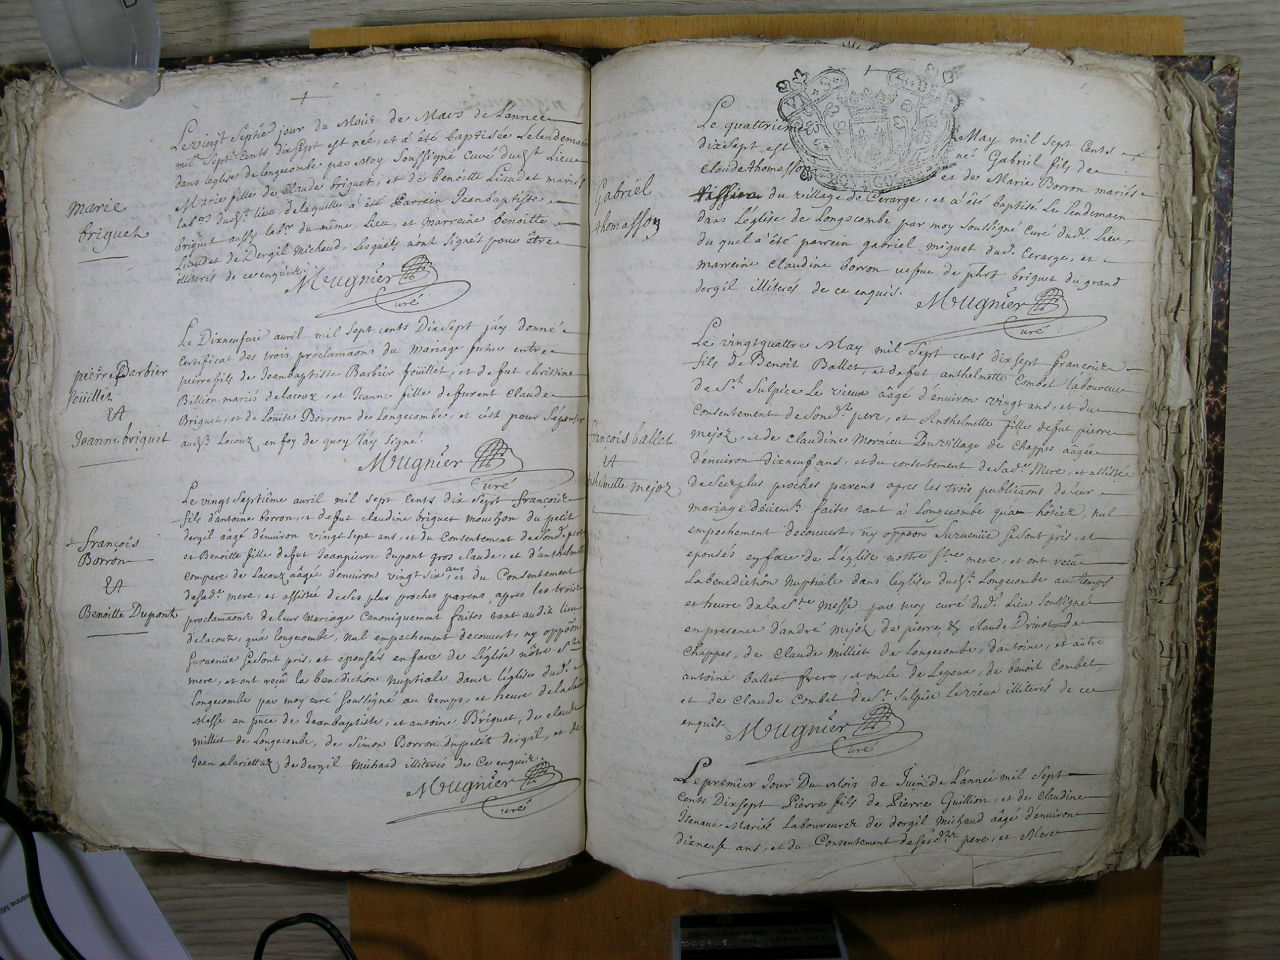 marie
briguet
Le vingt septiè jour du Mois de Mars de L'année
mil sept cents dix sept est née, et a été baptisée Le lendemain
dans leglise de longecombe par Moy soussigné curé dudt Lieu
Marie fille de Claude briguet, et de benoitte Liaudet mariés
labrs dudt lieu, de laquelle a été parrein Jeanbaptiste
briguet aussy labr du même Lieu, et marreine benoitte
Liaudet de Dergil Michaud, lesquels n'ont signés pour être
illiterés de ce enquis.
Mugnier
Curé
pierre Barbier
foüillet
ET
Jeanne briguet
Le Dixneufvié avril mil sept cents Dixsept j'ay donné
Certificat des trois proclamãons du Mariage futur entre
pierre fils de Jeanbaptiste Barbier foüillet, et de fut christine
Billion mariés de lacoux, et Jeanne fille de furent claude
Briguet, et de Loüise Borron de Longecombe, et c'est pour S'épouser
audt Lacoux en foy de quoy j'ay signé.
Mugnier
Curé
françois
Borron
ET
Benoitte Dupont
Le vingt septième avril mil sept cents dix sept françois
fils d'antoine borron, et de fut claudine briguet mouchon du petit
dergil aâgé d'environ vingt sept ans, et du Consentement de Sond. pere
et Benoitte fille de fut Jeanpierre dupont gros claude, et d'anthelmette
compare de Lacoux aâgée d'environ vingt six ans, et du Consentement
de sade mere, et assistée de ses plus proches parens, après les trois
proclamãons de leur Mariage Canoniquement faites tant audit lieu
de lacoux, qu'a longecombe, nul empechement decouvert, ny oppoõn
survenüe se sont pris, et epousés en face de L'église nôtre Ste
mere, et ont reçû la benediction Nuptiale dans l'église dudt
Longecombe par moy curé soussigné au temps, et heure de la Sainte
Messe en pnce de Jeanbaptiste, et antoine Briguet, de claude
milliet de Longecombe, de Simon Borron du petit dergil, et de
Jean alariettaz de dergil Michaud illiterés de Ce enquis.
Mugnier
Curé
Gabriël
thomasson
Le quattrieme May mil sept cents
dixsept est né Gabriël fils de
Claude thomasson et de Marie Borron mariés
du village de Cerarge, et a été baptisé Le lendemain
dans L'église de Longecombe par moy soussigné curé dudt Lieu,
du quel a été parrein gabriel miguet dud. Cerarge, et
marreine claudine borron vefve de briguet du grand
dergil illiterés de ce enquis.
Mugnier
Curé
françois ballet
ET
anthelmette mejoz
Le vingtquattre May mil sept cents dix sept françois
fils de Benoit Ballet, et de fut anthelmette Combet laboureur
de St Sulpice Le vieux aâgé d'environ vingt ans, et du
Consentement de Sond. pere, et Anthelmette fille de fut pierre
mejoz, et de claudine Mornieu Du village de Chappes aâgée
d'environ dixneuf ans, et du consentement de sade Mere, et assistée
de ses plus proches parens apres les trois publicãons de leur
mariage faites tant a Longecombe qu'a nul
empechement découvert, ny oppoõn Survenüe se sont pris, et
epousés en face de L'église nostre Ste mere, et ont reçu
La benediction Nuptiale dans l'église dudt Longecombe au temps
et heure de la Ste Messe par moy curé dudt Lieu soussigné
en presence d'andré Mejoz, de pierre & claude Drivet de
Chappes, de Claude Milliet de Longecombe, d'antoine, et autre
antoine ballet frere, et oncle de Lepoux, de benoit Combet
et de Claude Combet de St Sulpice Le vieux illiterés de ce
enquis.
Mugnier
Curé
Le premier Jour Du Mois de Juin de L'année mil sept
cents Dixsept Pierre fils de Pierre Guillion, et de Claudine
Jsenave Mariés Laboureurs de dergil Michaud aâgé d'environ
dixneuf ans, et du Consentement de Sesdts pere, et Mere